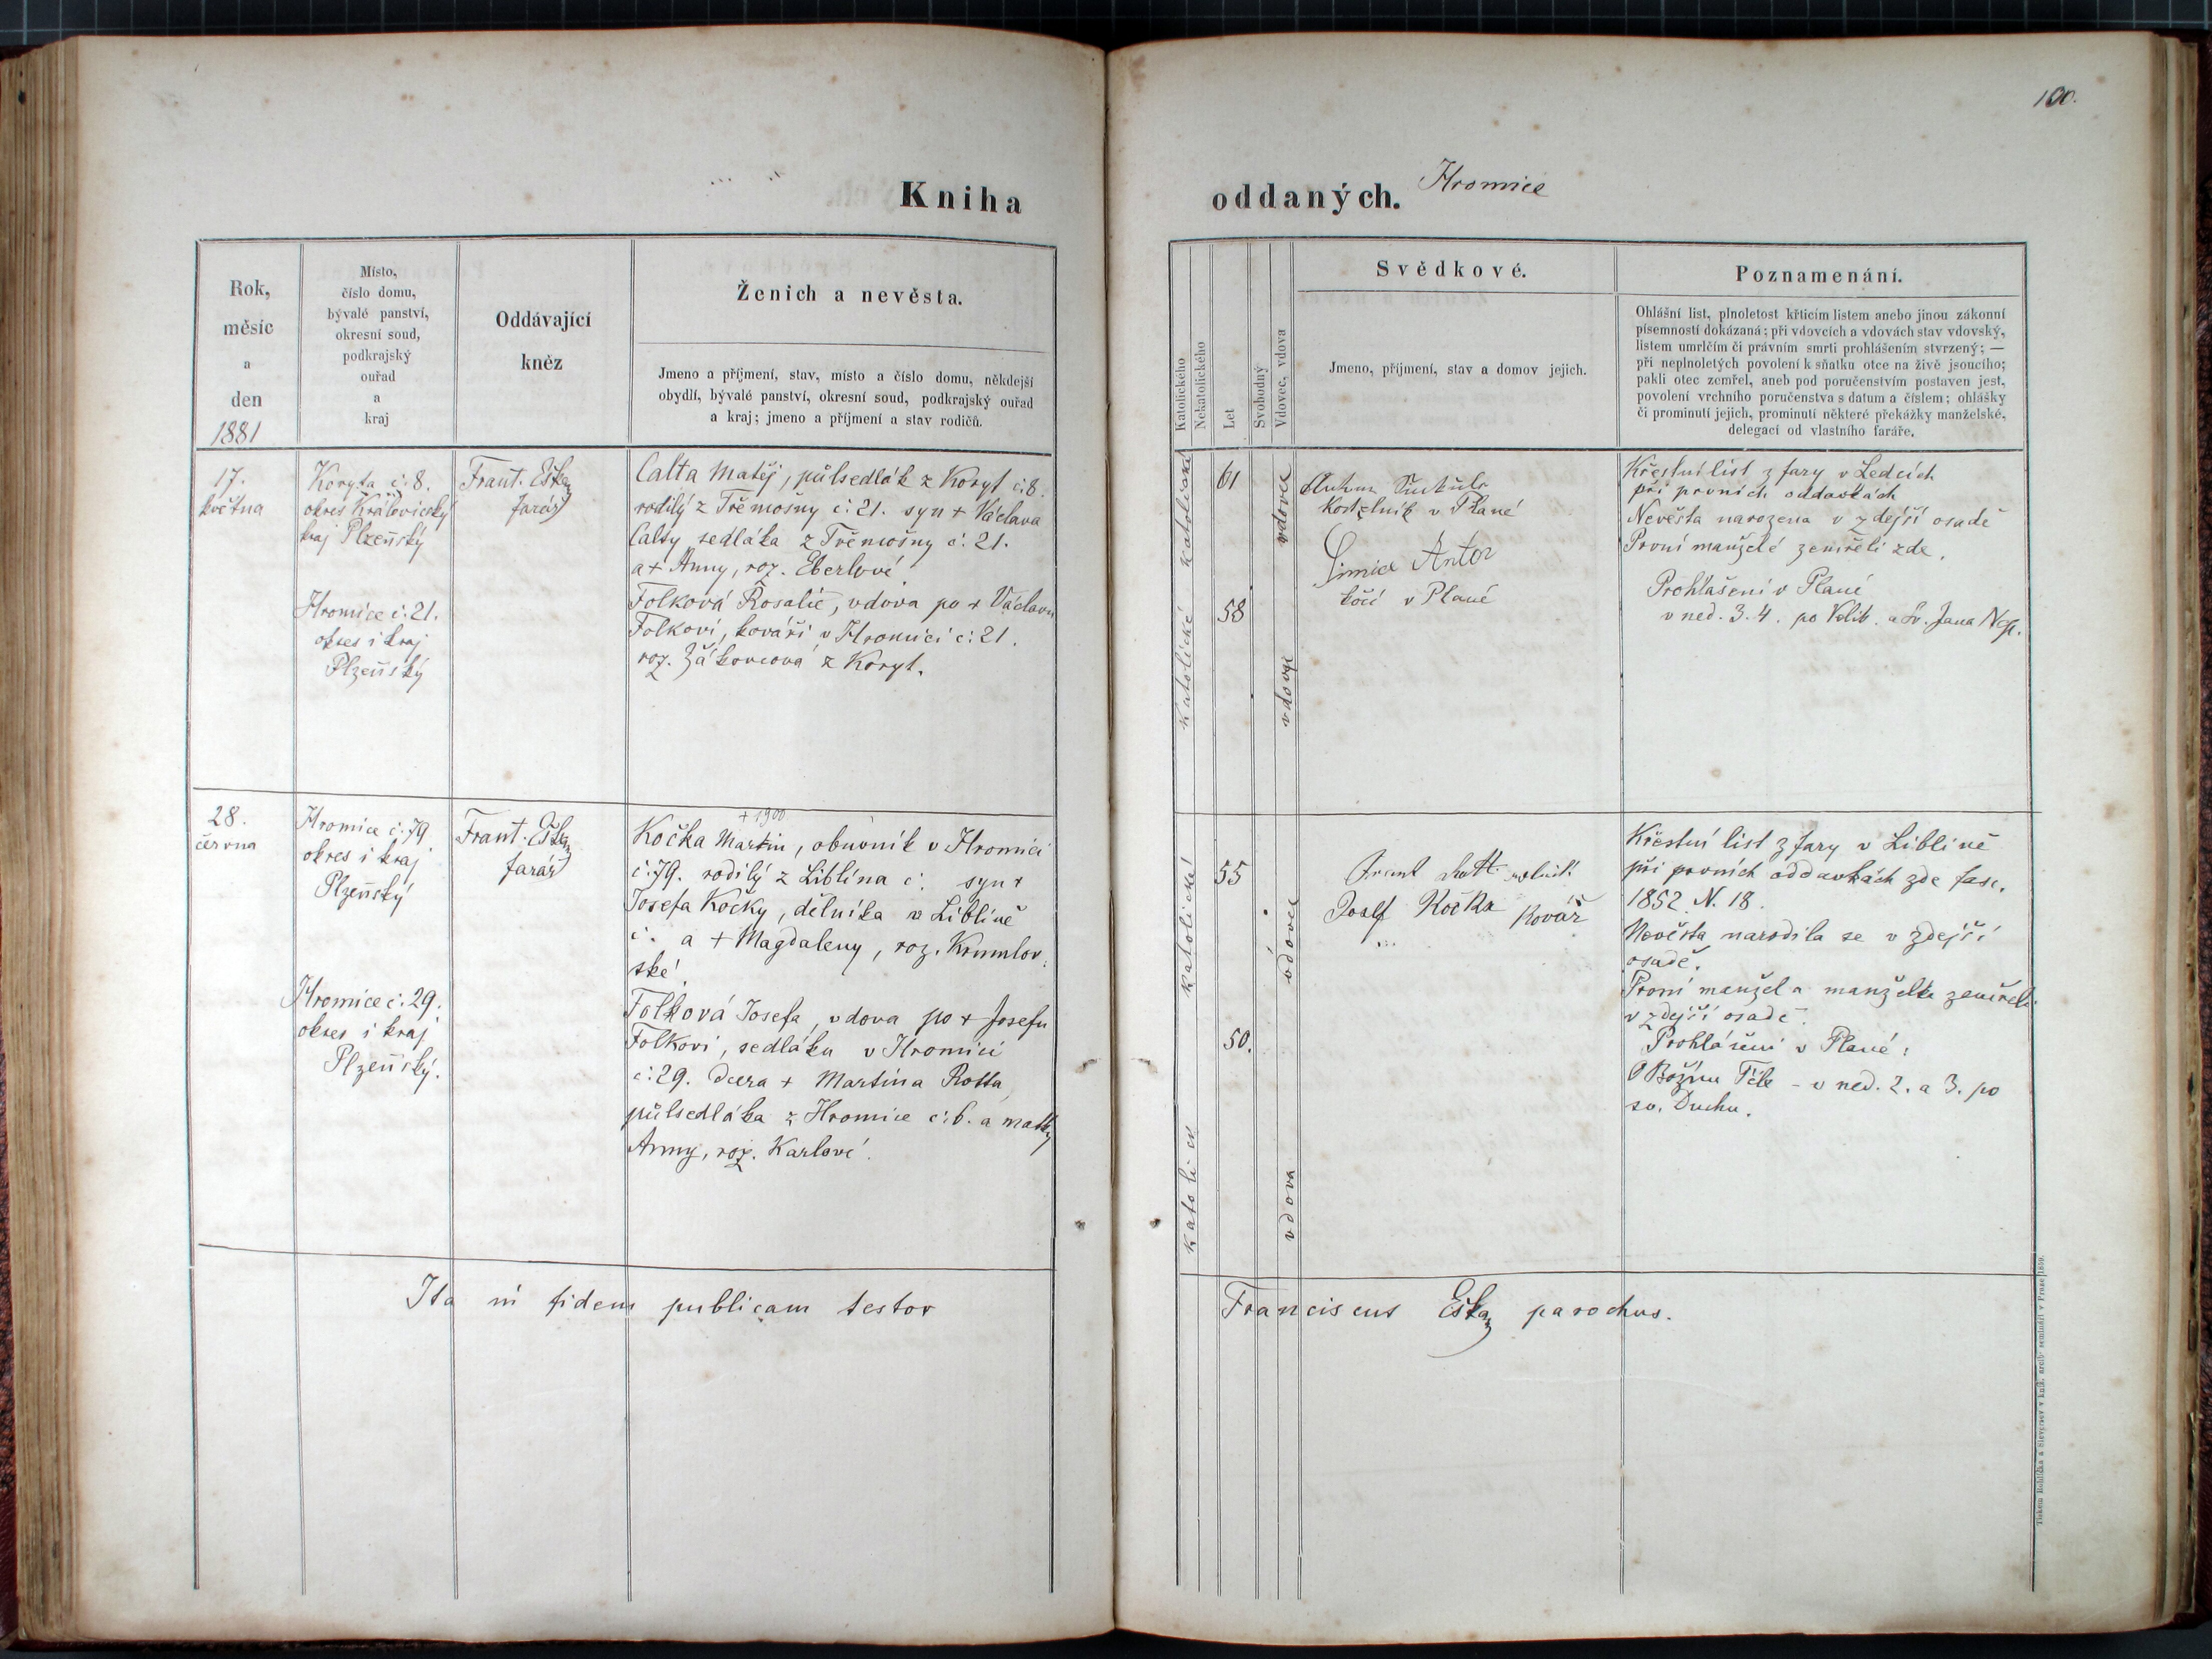 100.
Kniha
oddaných.
Hromice
Rok,
měsíc
a
den
1881
Místo,
číslo domu,
bývalé panství,
okresní soud,
podkrajský
ouřad
a
kraj
Oddávající
kněz
Ženich a nevěsta.
Jmeno a příjmení, stav, místo a číslo domu, někdejší
obydlí, bývalé panství, okresní soud, podkrajský ouřad
a kraj; jmeno a příjmení a stav rodičů.
Katolického
Nekatolického
Let
Svobodný
Vdovec, vdova
Svědkové.
Jmeno, příjmení, stav a domov jejich.
Poznamenání.
Ohlášní list, plnoletost křticím listem anebo jinou zákonní
písemností dokázaná; při vdovcích a vdovách stav vdovský,
listem umrlčím či právním smrti prohlášením stvrzený; —
při neplnoletých povolení k sňatku otce na živě jsoucího;
pakli otec zemřel, aneb pod poručenstvím postaven jest,
povolení vrchního poručenstva s datum a číslem; ohlášky
či prominutí jejich, prominutí některé překážky manželské,
delegací od vlastního faráře.
17.
května
Koryta č. 8.
okres Královický
kraj Plzeňský
Hromice č. 21.
okres i kraj
Plzeňský
Frant. Eška
farář
Calta Matěj, půlsedlák z Koryt č. 8.
rodilý z Třemošny č. 21. syn + Václava
Calty sedláka z Třemošny č. 21.
a + Anny, roz. Eberlové
Folková Rosalie, vdova po + Václavu
Folkovi, kováři v Hromici č. 21.
roz. Žákovcová z Koryt.
katolické
katolické
61
58
vdovec
vdova
Kostelník v Plané
Antor
kočí v Plané
Křestní list z fary v Ledcích
při prvních oddavkách
Nevěsta narozena v zdejší osadě
První manželé zemřeli zde.
Prohlášení v Plané
v ned. 3. 4. po Velik. a Sv. Jana Nep.
28.
června
Hromice č. 79
okres i kraj
Plzeňský
Hromice č. 29.
okres i kraj
Plzeňský.
Frant. Eška
farář
+ 1900
Kočka Martin, obuvník v Hromici
č. 79. rodilý z Liblína č. syn +
Josefa Kočky, dělníka v Liblíně
č. a + Magdaleny, roz. Krumlov-
ské
Folková Josefa, vdova po + Josefu
Folkovi, sedláku v Hromici
č. 29. dcera + Martina Rotta
půlsedláka z Hromice č. 6. a matky
Anny, roz. Karlové.
katolické
katolické
55
50.
vdovec
vdova
Frant Rott rolník
Josef Kočka Kovář
Křestní list z fary v Liblíně
při prvních oddavkách zde fasc.
1852. N. 18.
Nevěsta narodila se v zdejší
osadě.
První manžel a manželka zemřeli
v zdejší osadě.
Prohlášení v Plané:
O Božím Těle - v ned. 2. a 3. po
sv. Duchu.
Ita in fidem publicam testor
Franciscus Eška parochus.